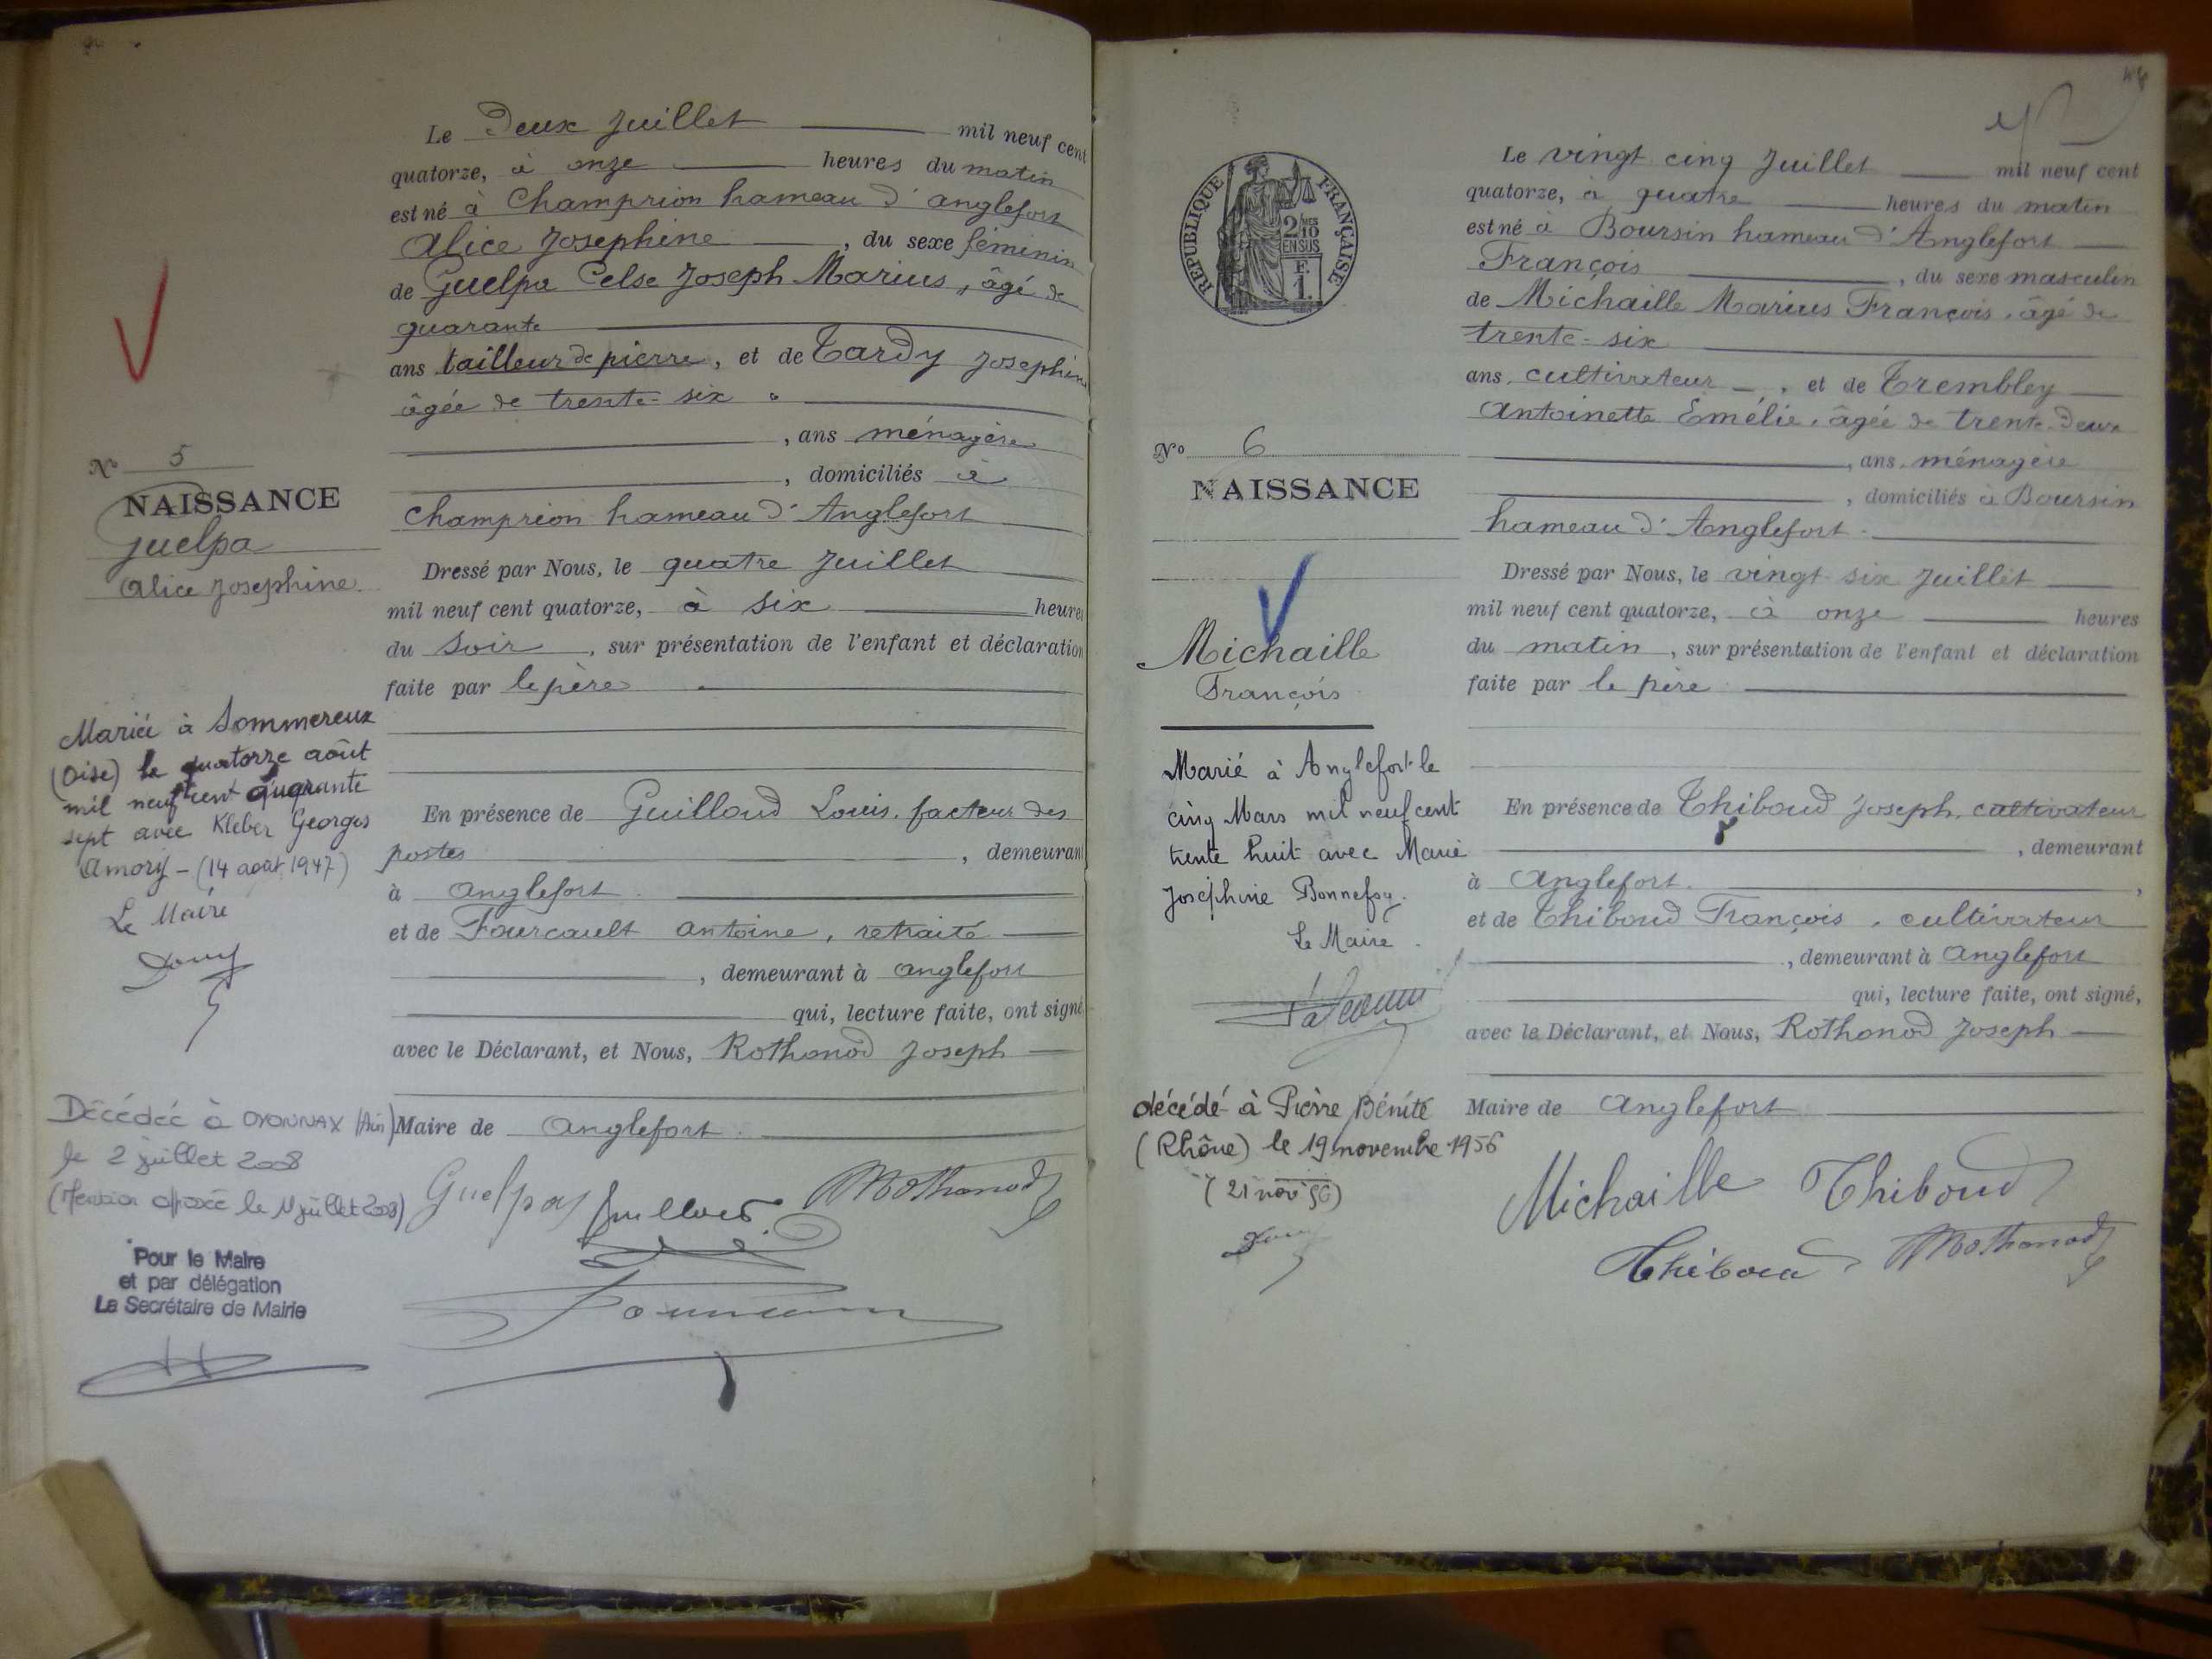 Le Deux Juillet mil neuf cent
quatorze, à onze heures du matin
est né à Champrion hameau d'anglefort
Alice Josephine, du sexe féminin
de Guelpa Celse Joseph Marius, âgé de
quarante
ans tailleur de pierre, et de Tardy Josephine
âgée de trente-six
, ans ménagère
, domiciliés à
Champrion hameau d'Anglefort
Dressé par Nous, le quatre Juillet
mil neuf cent quatorze, à six heures
du Soir, sur présentation de l'enfant et déclaration
faite par le père
En présence de Guilloud Louis, facteur des
postes, demeurant
à anglefort
et de Fourcault antoine, retraité
, demeurant à anglefort
qui, lecture faite, ont signé
avec le Déclarant, et Nous, Rothonod Joseph
Maire de anglefort.
Guelpa Guilloud Rothonod
No 5
NAISSANCE
Guelpa
Alice Josephine
Mariée à Sommereux
(Oise) le quatorze août
mil neuf cent quarante
sept avec Kleber Georges
Amory - (14 août 1947)
Le Maire
Décédée à OYONNAX (Ain)
le 2 juillet 2008
(Mention apposée le juillet 2008)
Pour le Maire
et par délégation
Le Secrétaire de Mairie
REPUBLIQUE FRANÇAISE
2 MES
10
EN SUS
F.
1.
No 6
NAISSANCE
Michaille
François
Marié à Anglefort le
cinq Mars mil neuf cent
trente huit avec Marie
Joséphine Bonnefoy.
Le Maire
décédé à Pierre Bénite
(Rhône) le 19 novembre 1956
(21 nov 56)
Le vingt cinq Juillet mil neuf cent
quatorze, à quatre heures du matin
est né à Boursin hameau d'Anglefort
François, du sexe masculin
de Michaille Marius François, âgé de
trente-six
ans, cultivateur, et de Trembley
Antoinette Emélie, âgée de trente-deux
, ans, ménagère
, domiciliés à Boursin
hameau d'Anglefort.
Dressé par Nous, le vingt-six Juillet
mil neuf cent quatorze, à onze heures
du matin, sur présentation de l'enfant et déclaration
faite par le père
En présence de Thiboud Joseph, cultivateur
, demeurant
à Anglefort.
et de Thiboud François, cultivateur
, demeurant à Anglefort
qui, lecture faite, ont signé,
avec le Déclarant, et Nous, Rothonod Joseph
Maire de Anglefort
Michaille Thiboud
Thiboud Rothonod